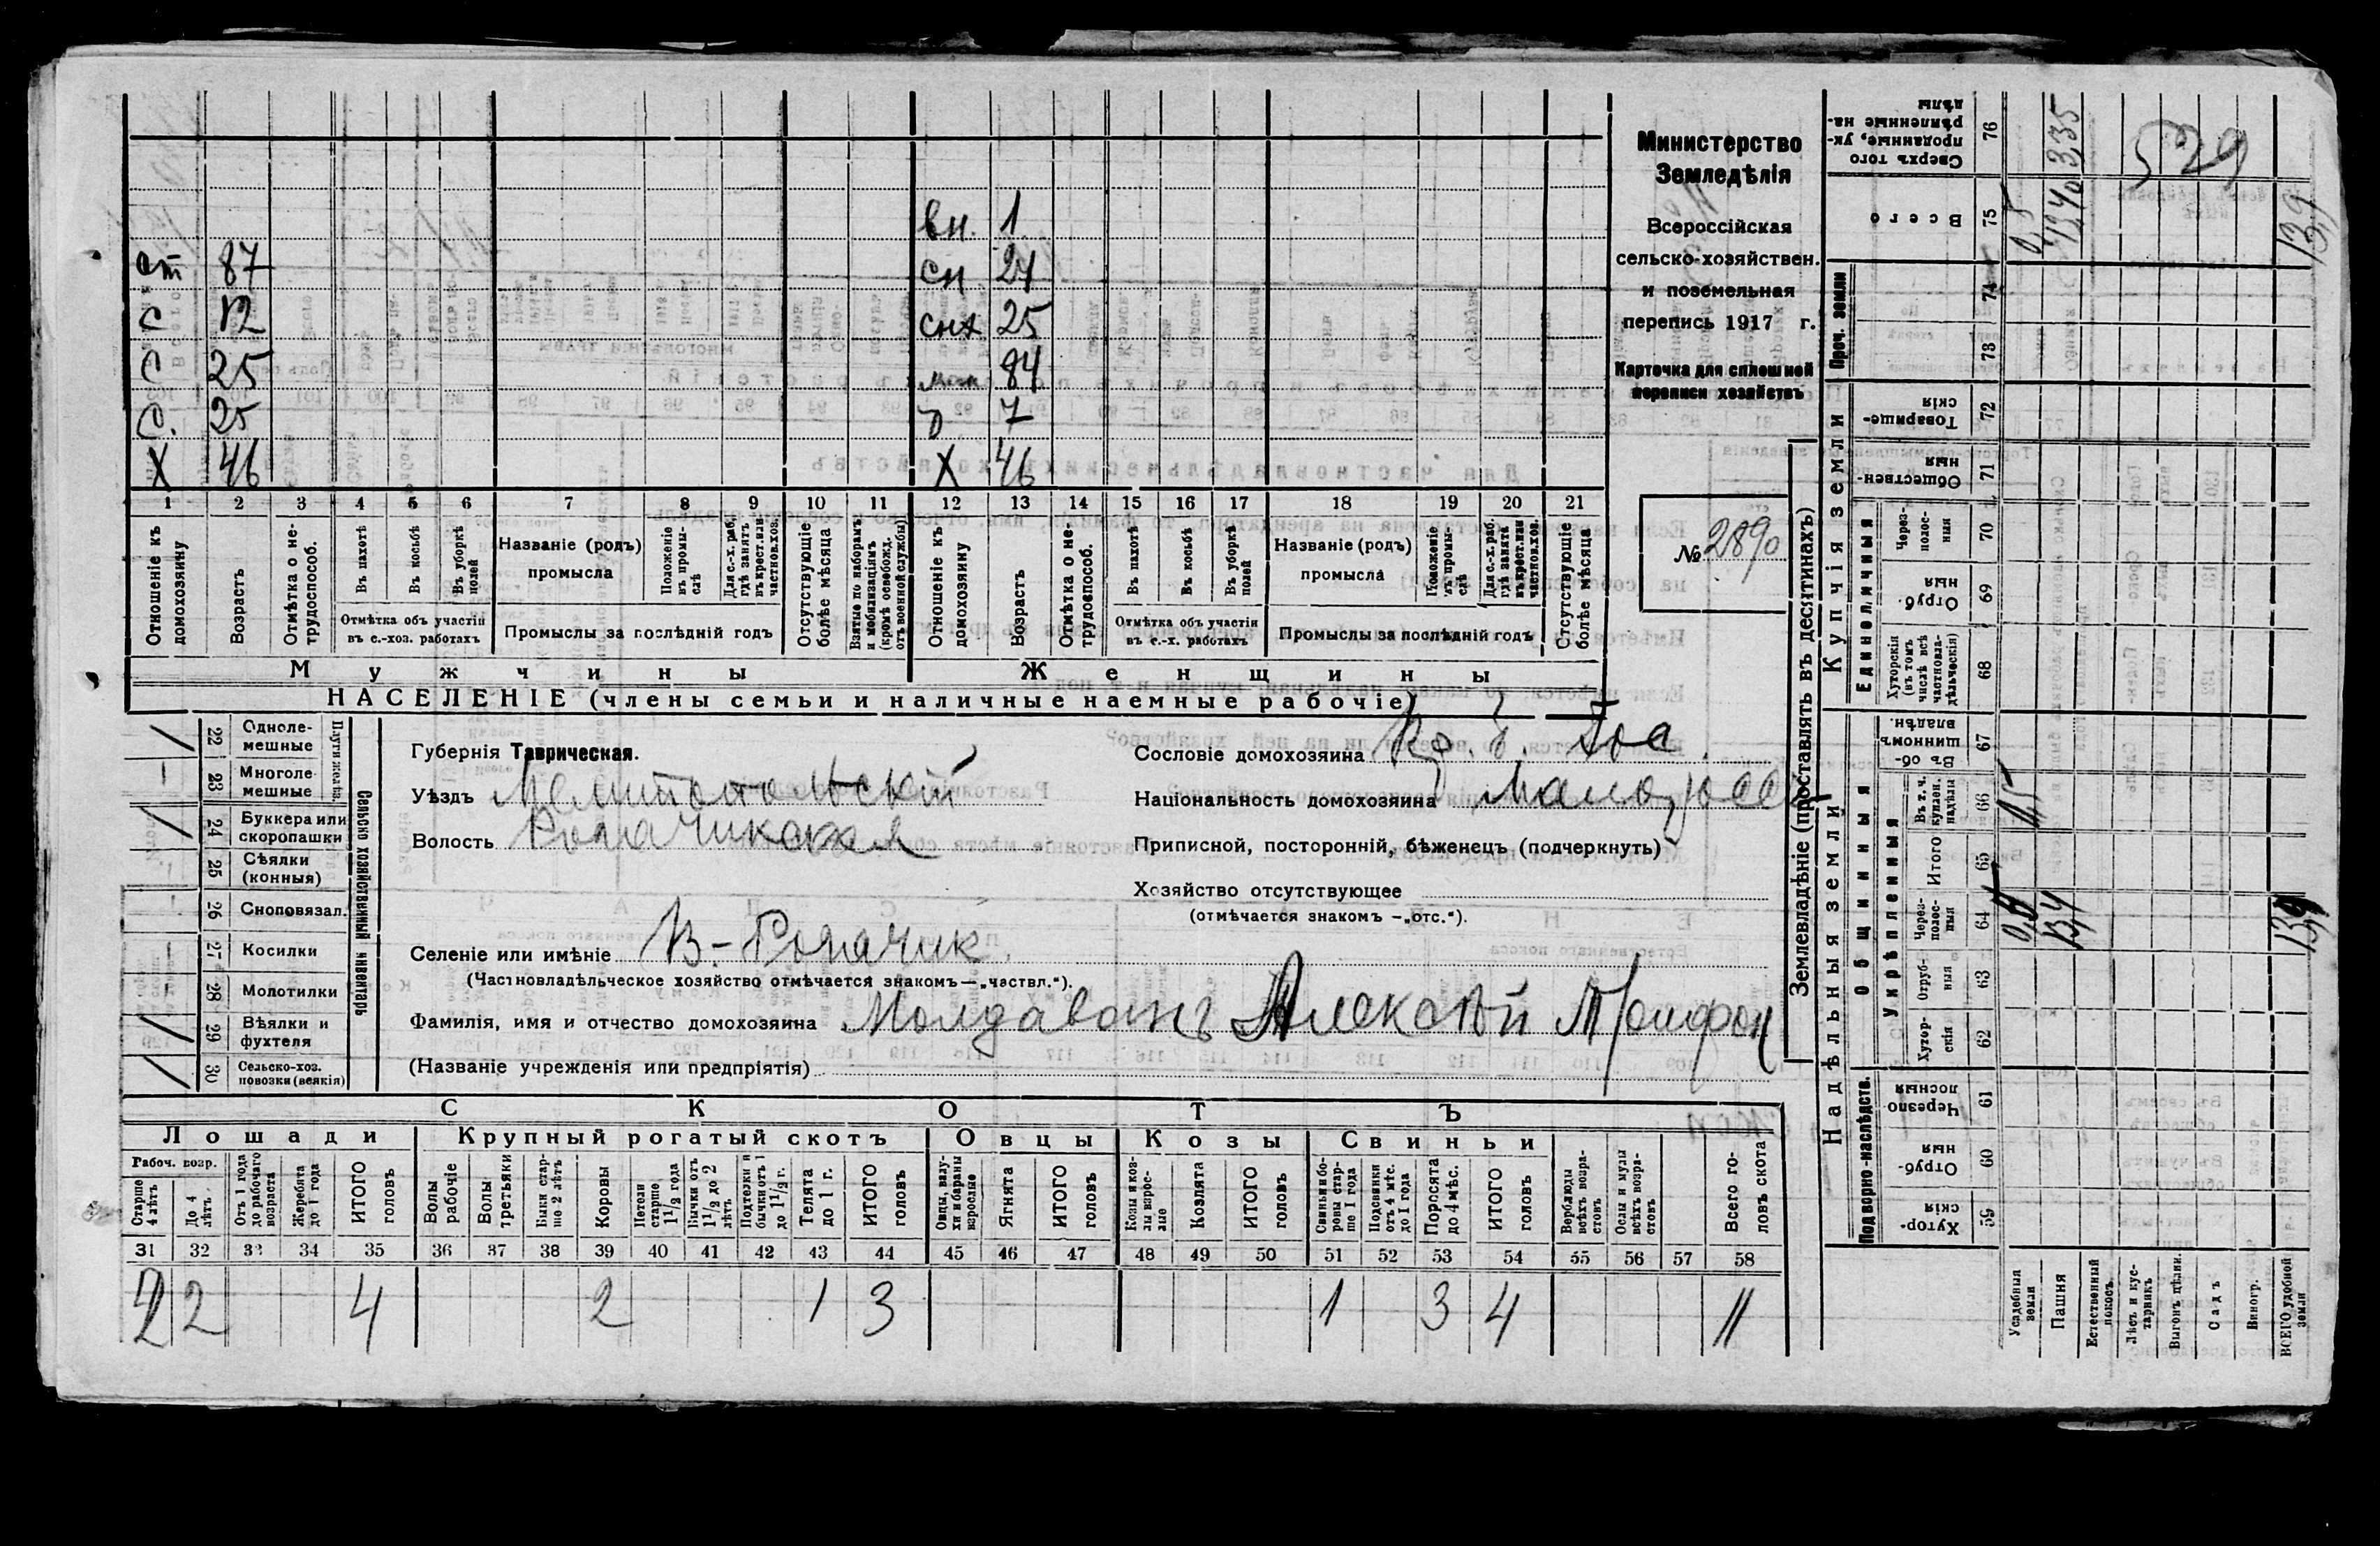 Министерство
Земледѣлія
Всероссійская
сельско-хозяйствен.
и поземельная
перепись 1917 г.
Карточка для сплошной
переписи хозяйствъ
№ 2890
вн. 1
ст 87 сн 24
с 12 снх 25
с 25 84
с. 25 7
Х 46 Х 46
1 2 3 4 5 6 7 8 9 10 11 12 13 14 15 16 17 18 19 20 21
Отношеніе къ домохозяину
Возрастъ
Отмѣтка о не-трудоспособ.
Въ пахотѣ
Въ косьбѣ
Въ уборкѣ полей
Отмѣтка объ участіи въ с.-хоз. работахъ
Названіе (родъ) промысла
Положеніе въ промы-слѣ
Для с.-х. раб. гдѣ занятъ въ крест. или частнов. хоз.
Промыслы за послѣдній годъ
Отсутствующіе болѣе мѣсяца
Взятые по наборамъ и мобилизаціямъ (кромѣ освобожд. отъ военной службы)
Отношеніе къ домохозяину
Возрастъ
Отмѣтка о не-трудоспособ.
Въ пахотѣ
Въ косьбѣ
Въ уборкѣ полей
Отмѣтка объ участіи въ с.-х. работахъ
Названіе (родъ) промысла
Положеніе въ промы-слѣ
Для с.-х. раб. гдѣ занята въ крест. или частнов. хоз.
Промыслы за послѣдній годъ
Отсутствующіе болѣе мѣсяца
Мужчины Женщины
НАСЕЛЕНІЕ (члены семьи и наличные наемные рабочіе)
22 Одноле-мешные
23 Многоле-мешные
Плуги желѣз.
24 Буккера или скоропашки
25 Сѣялки (конныя)
26 Сноповязал.
27 Косилки
28 Молотилки
29 Вѣялки и фухтеля
30 Сельско-хоз. повозки (всякія)
Сельско хозяйственный инвентарь
Губернія Таврическая.
Уѣздъ Мелитопольскій
Волость Рогачикская
Селеніе или имѣніе В-Рогачик
(Частновладѣльческое хозяйство отмѣчается знакомъ—„частвл.“).
Фамилія, имя и отчество домохозяина Молдаванъ Алексѣй Трифон
(Названіе учрежденія или предпріятія)
Сословіе домохозяина
Національность домохозяина Малорос
Приписной, посторонній, бѣженецъ (подчеркнуть)
Хозяйство отсутствующее
(отмѣчается знакомъ —„отс.“).
СКОТЪ
Лошади Крупный рогатый скотъ Овцы Козы Свиньи
Рабоч. возр.
Старше 4 лѣтъ
До 4 лѣтъ
Отъ 1 года до рабочаго возраста
Жеребята до 1 года
ИТОГО головъ
Волы рабочіе
Волы третьяки
Быки стар-ше 2 лѣтъ
Коровы
Нетели старше 1½ года
Бычки отъ 1½ до 2 лѣтъ
Подтелки и бычки отъ 1 до 1½ г.
Телята до 1 г.
ИТОГО головъ
Овцы, валу-хи и бараны взрослые
Ягнята
ИТОГО головъ
Козы и коз-лы взрос-лые
Козлята
ИТОГО головъ
Свиньи и бо-ровы стар-ше 1 года
Подсвинки отъ 4 мѣс. до 1 года
Поросята до 4 мѣс.
ИТОГО головъ
Верблюды всѣхъ возра-стовъ
Ослы и мулы всѣхъ возра-стовъ
Всего го-ловъ скота
31 32 33 34 35 36 37 38 39 40 41 42 43 44 45 46 47 48 49 50 51 52 53 54 55 56 57 58
2 2 4 2 1 3 1 3 4 11
Землевладѣніе (проставлять въ десятинахъ)
Надѣльныя земли Купчія земли Проч. земли
Подворно-наслѣдств. Общинныя Единоличныя
Укрѣпленныя
Сверхъ того проданные, ук-рѣпленные на-дѣлы 76 3,35
Всего 75 0,5 13,9
74
73
Товарище-скія 72
Обществен-ныя 71
Через-полос-ныя 70
Отруб-ныя 69
Хуторскія (въ томъ числѣ всѣ частновла-дѣльческія) 68
Въ об-щинномъ владѣн. 67
Въ т. ч. куплен. надѣлы 66
Итого 65
Через-полос-ныя 64 0,5 13,4 13,9
Отруб-ныя 63
Хутор-скія 62
Черезпо-лосныя 61
Отруб-ныя 60
Хутор-скія 59
Усадебныя земли
Пашня
Естественный покосъ
Лѣсъ и кус-тарникъ
Выгонъ цѣлин.
Садъ
Виногр.
ВСЕГО удобной земли
529